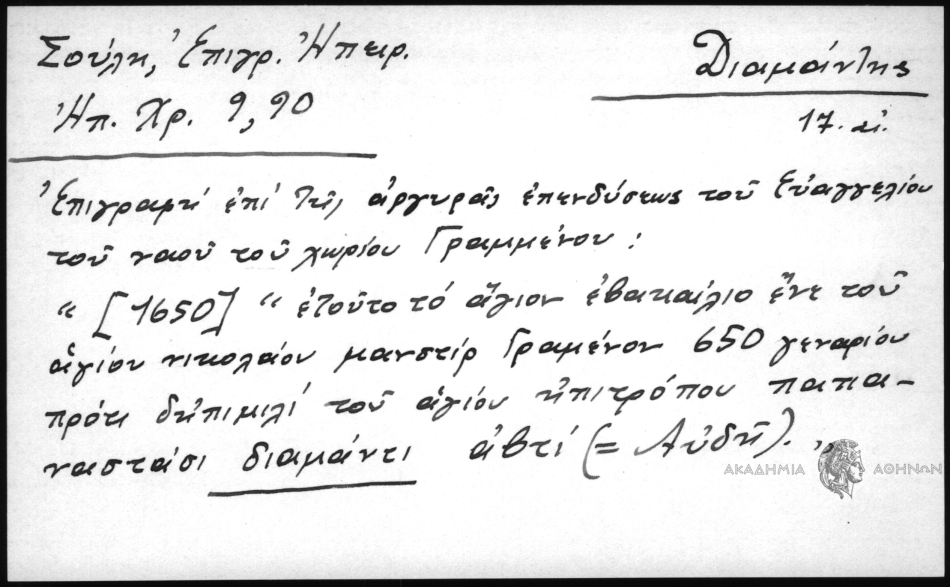 Σούλη, Ἐπιγρ. Ἠπειρ.
Διαμάντης
Ἠπ. Χρ. 9, 90
17. αἰ.
Ἐπιγραφή ἐπί τῆς ἀργυρᾶς ἐπενδύσεως τοῦ Εὐαγγελίου
τοῦ ναοῦ τοῦ χωρίου Γραμμένου :
“ [1650] “ ἐτοῦτο τό ἅγιον ἐβακαίλιο ἔνε τοῦ
ἁγίου νικολάου μανστίρ Γραμένον 650 γεναρίου
πρότι δηπιμιλί τοῦ ἁγίου ηπιτρόπου παπα-
ναστάσι διαμάντι ἀβτί (= Αὐδῆ). „
ΑΚΑΔΗΜΙΑ ΑΘΗΝΩΝ